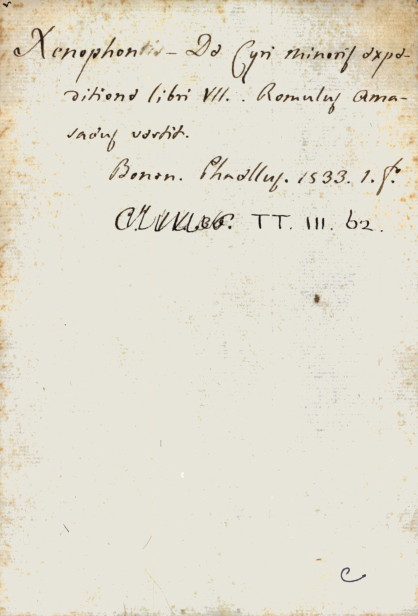 Xenophontis - De Cyri minoris expe-
ditione libri VII. . Romulus Ama-
saeus vertit.
Bonon. Phaellus. 1533. 1. fo.
TT. III. 62.
C